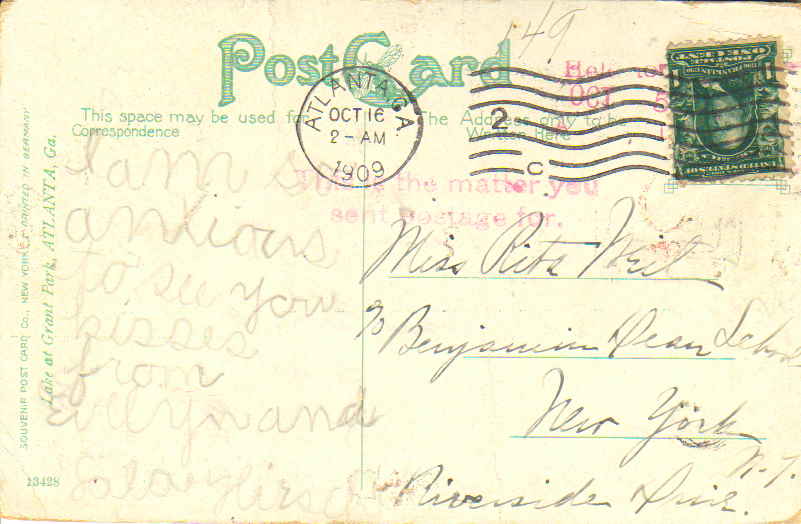 149
Post Card
ATLANTA, GA.
OCT 16
2-AM
1909
2
C
OCT 5
This space may be used for
Correspondence
The Address only to be
Written Here
This is the matter you
sent postage for.
I am so
antious
to see you
kisses
from
Evelyn and
Miss Rita Weil
c/o Benjamin Dean School
New York
N.Y.
Riverside Drive.
SOUVENIR POST CARD CO., NEW YORK, PRINTED IN GERMANY
Lake at Grant Park, ATLANTA, Ga.
13428